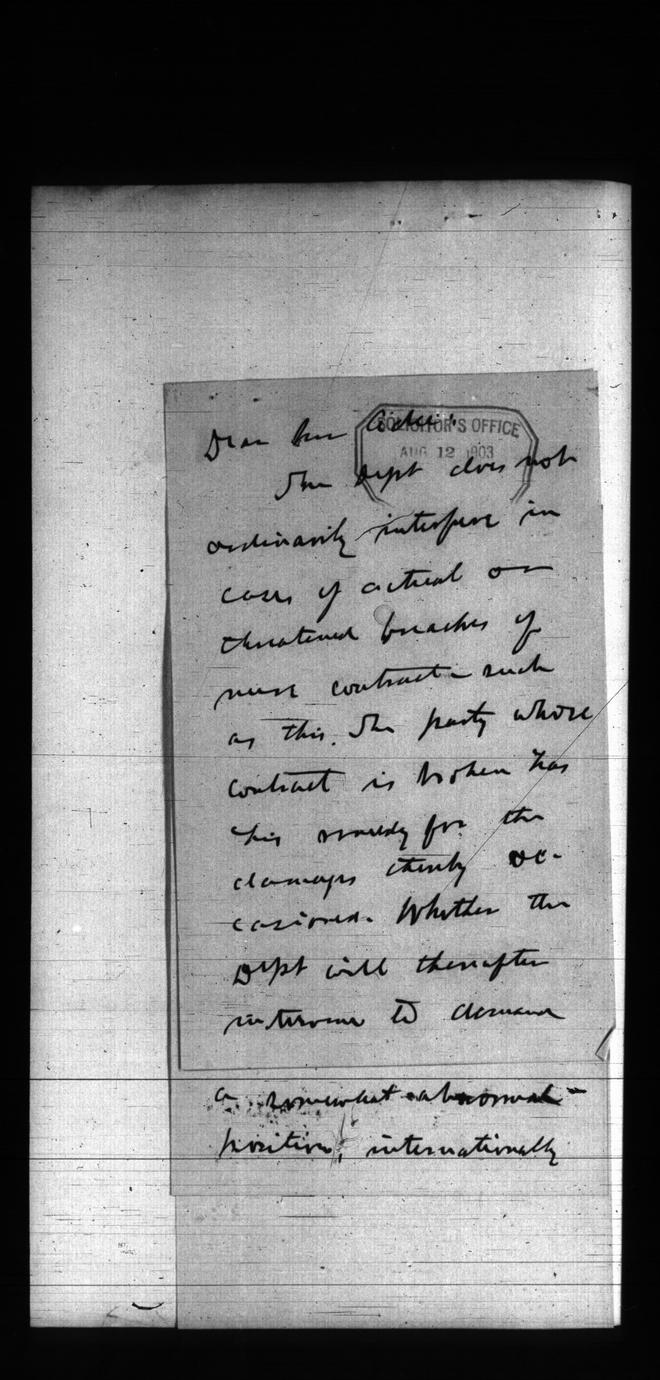 Dear Mr. Adee:
SOLICITOR'S OFFICE
AUG 12 1903
The Dept does not
ordinarily interfere in
cases of actual or
threatened breaches of
mere contract such
as this. The party whose
contract is broken has
his remedy for the
damages thereby oc-
casioned. Whether the
Dept will thereafter
intervene to demand
a somewhat abnormal
position, internationally